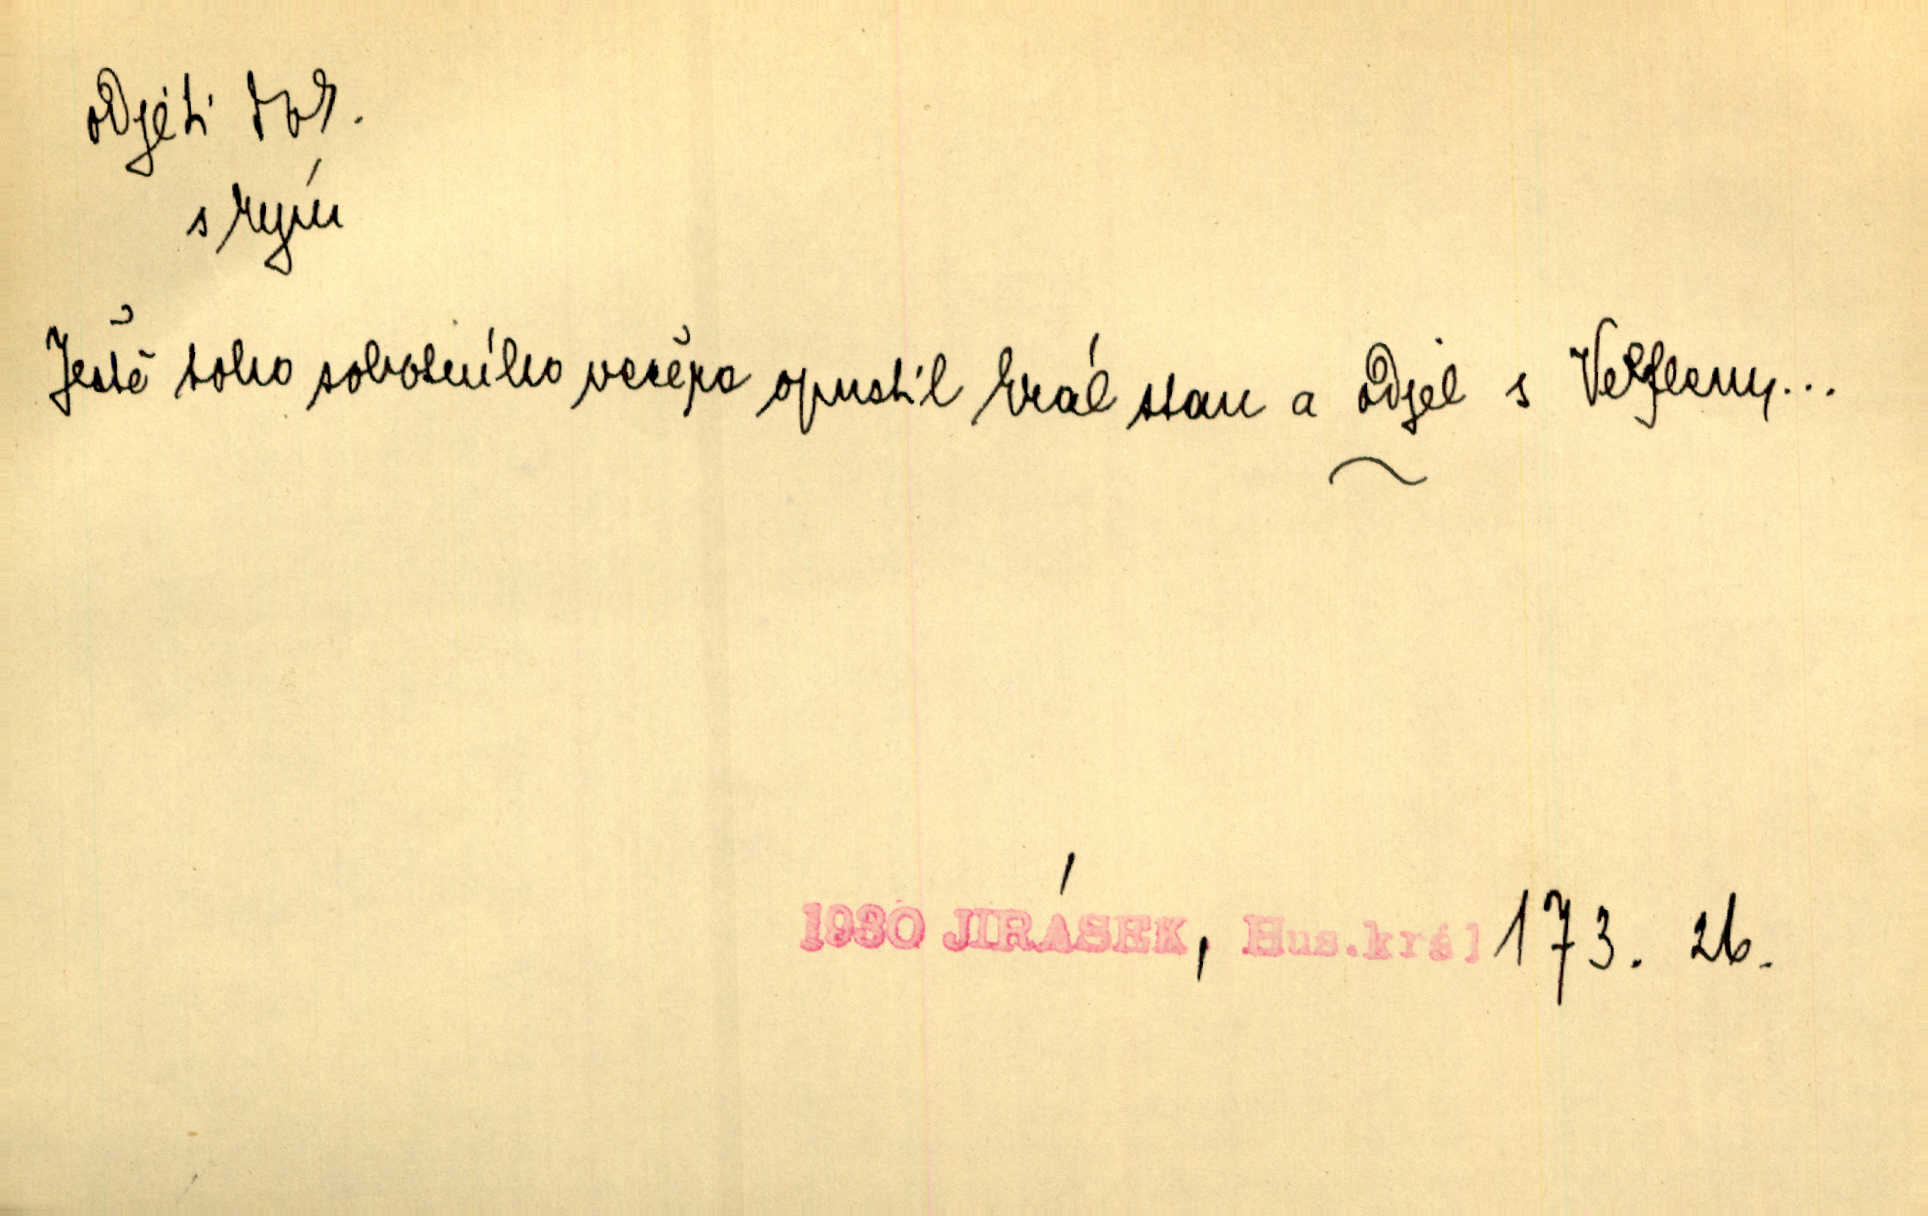 odjeti dok.
s kým
Ještě toho sobotního večera opustil král stan a odjel s
1930 JIRÁSEK, Hus.král 173. 26.